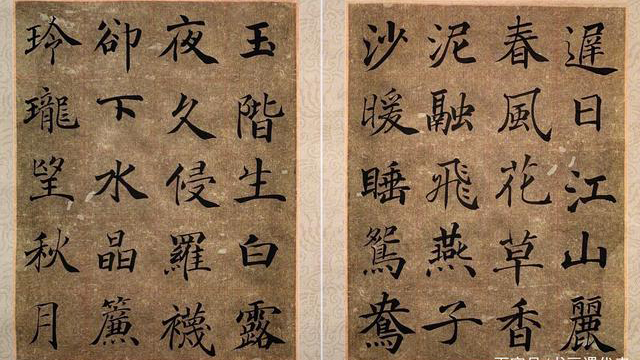 遲日江山麗
春風花草香
泥融飛燕子
沙暖睡鴛鴦
玉階生白露
夜久侵羅襪
卻下水晶簾
玲瓏望秋月